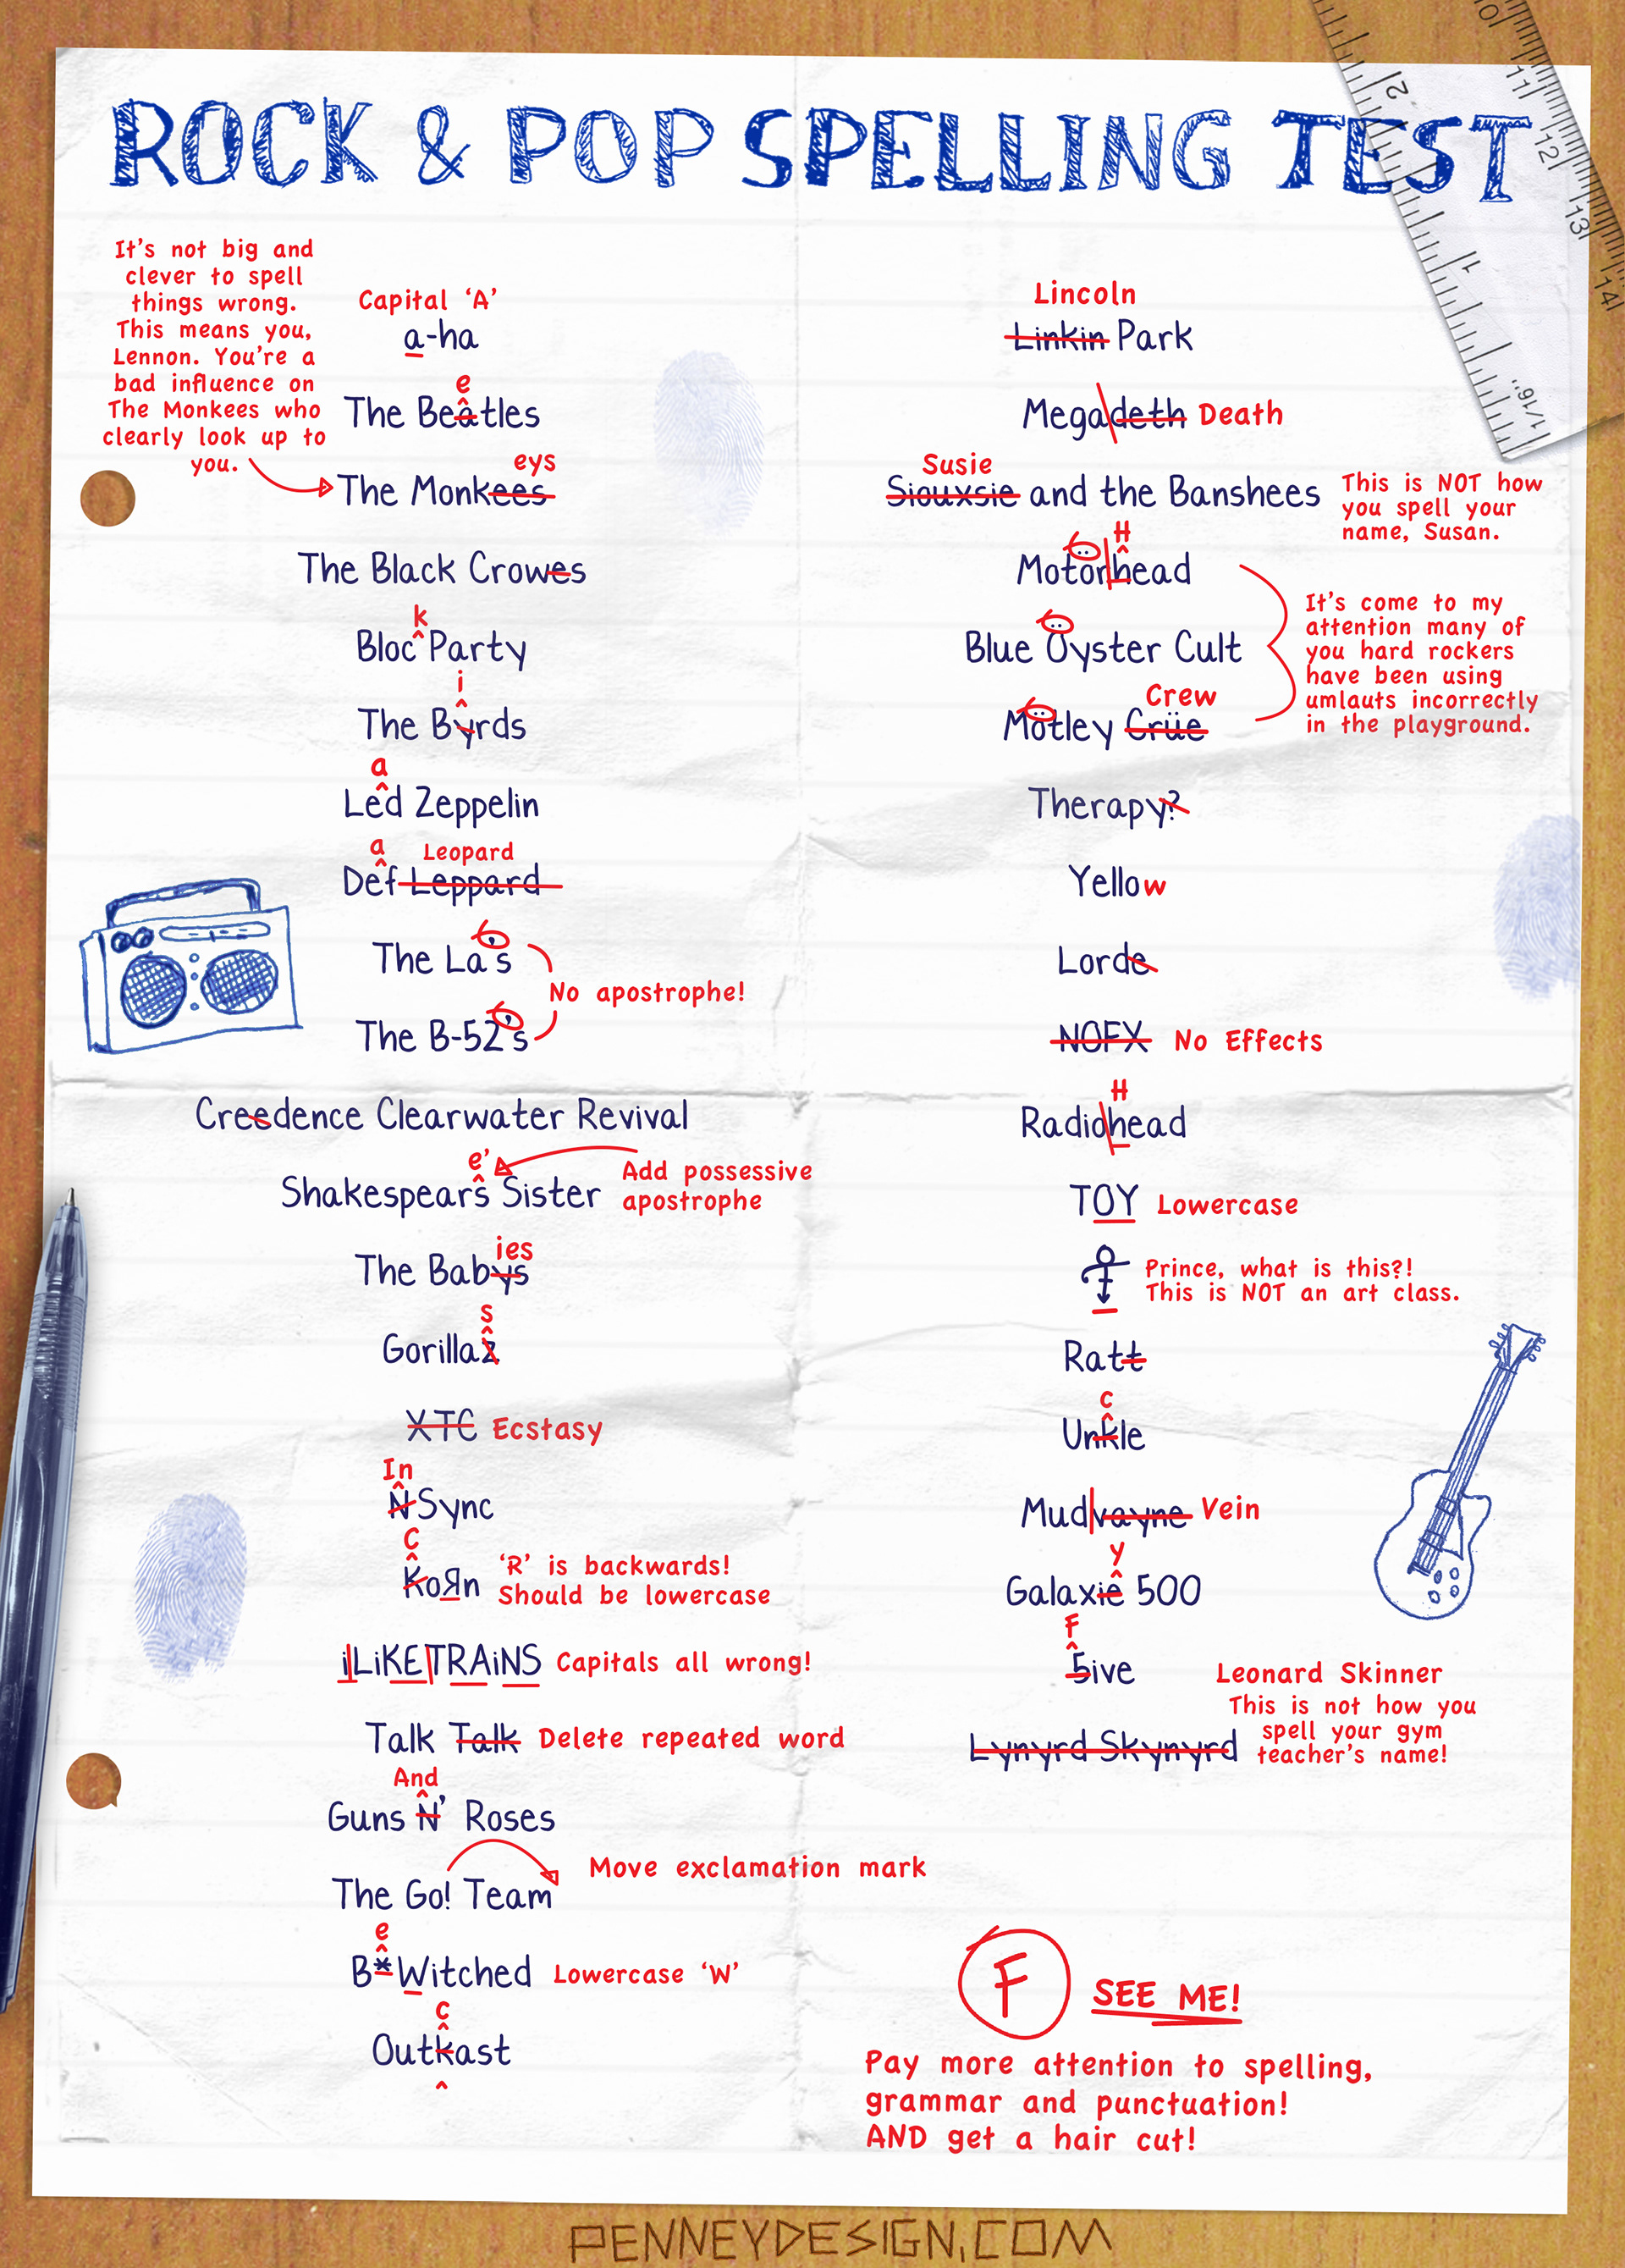 ROCK & POP SPELLING TEST
It's not big and
clever to spell
things wrong.
This means you,
Lennon. You're a
bad influence on
The Monkees who
clearly look up to
you.
Capital 'A'
a-ha
e
The Beatles
eys
The Monkees
The Black Crowes
k
Bloc Party
i
The Byrds
a
Led Zeppelin
a Leopard
Def Leppard
The La's
No apostrophe!
The B-52's
Creedence Clearwater Revival
e'
Shakespears Sister
Add possessive
apostrophe
ies
The Babys
s
Gorillaz
XTC Ecstasy
In
N Sync
C
KoЯn
'R' is backwards!
Should be lowercase
iLiKETRAiNS Capitals all wrong!
Talk Talk Delete repeated word
And
Guns N' Roses
The Go! Team
Move exclamation mark
e
B*Witched Lowercase 'W'
c
Outkast
Lincoln
Linkin Park
Megadeth Death
Susie
Siouxsie and the Banshees
This is NOT how
you spell your
name, Susan.
H
Motörhead
Blue Öyster Cult
Crew
Mötley Crüe
It's come to my
attention many of
you hard rockers
have been using
umlauts incorrectly
in the playground.
Therapy?
Yellow
Lorde
NOFX No Effects
H
Radiohead
TOY Lowercase
Prince, what is this?!
This is NOT an art class.
Ratt
c
Unkle
Mudvayne Vein
y
Galaxie 500
F
5ive
Leonard Skinner
Lynyrd Skynyrd
This is not how you
spell your gym
teacher's name!
F SEE ME!
Pay more attention to spelling,
grammar and punctuation!
AND get a hair cut!
2
1
1/16"
10
11
12
13
14
PENNEYDESIGN.COM